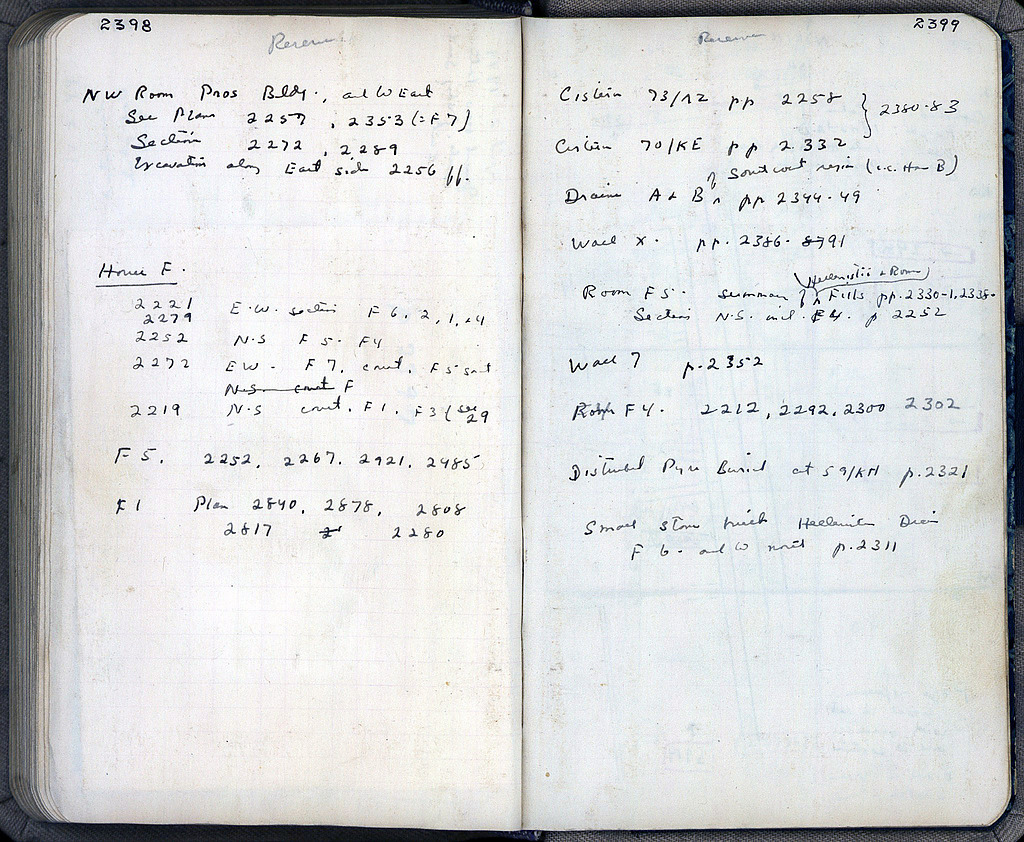 2398
NW Room Pros Bldg., and W East
See Plans 2257, 2353 (=F7)
Section 2272, 2289
Excavation along East side 2256 ff.
House F.
2221
2279 E-W. section F 6, 2, 1, 4
2252 N-S F 5. F4
2272 EW - F 7, court, F 5
N-S. court F
2219 N-S court, F1, F3 (see
29
F 5. 2252, 2267, 2921, 2485
F1 Plan 2840, 2878, 2808
2817 2280
2399
Cistern 73/ pp 2258
2380-83
Cistern 70/KE pp 2332
of South court region (i.e. House B)
Drains A & B pp 2344-49
Wall X. pp. 2386-8791
Hellenistic & Roman
Room F5. Summary of Fills pp. 2330-1, 2338.
Section N-S. incl. F4. p 2252
Wall 7 p. 2352
Room F4. 2212, 2292, 2300 2302
Disturbed Pyre Burial at 59/KH p. 2321
Small stone Hellenistic Drain
F 6. and W north p. 2311